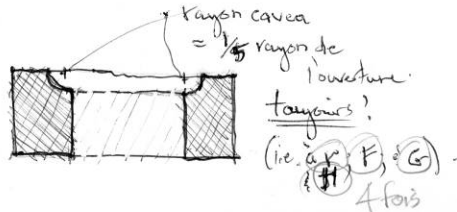 rayon cavea
= 1/5 rayon de
l'ouverture.
toujours?
(i.e. à r, F, G).
H
4 fois